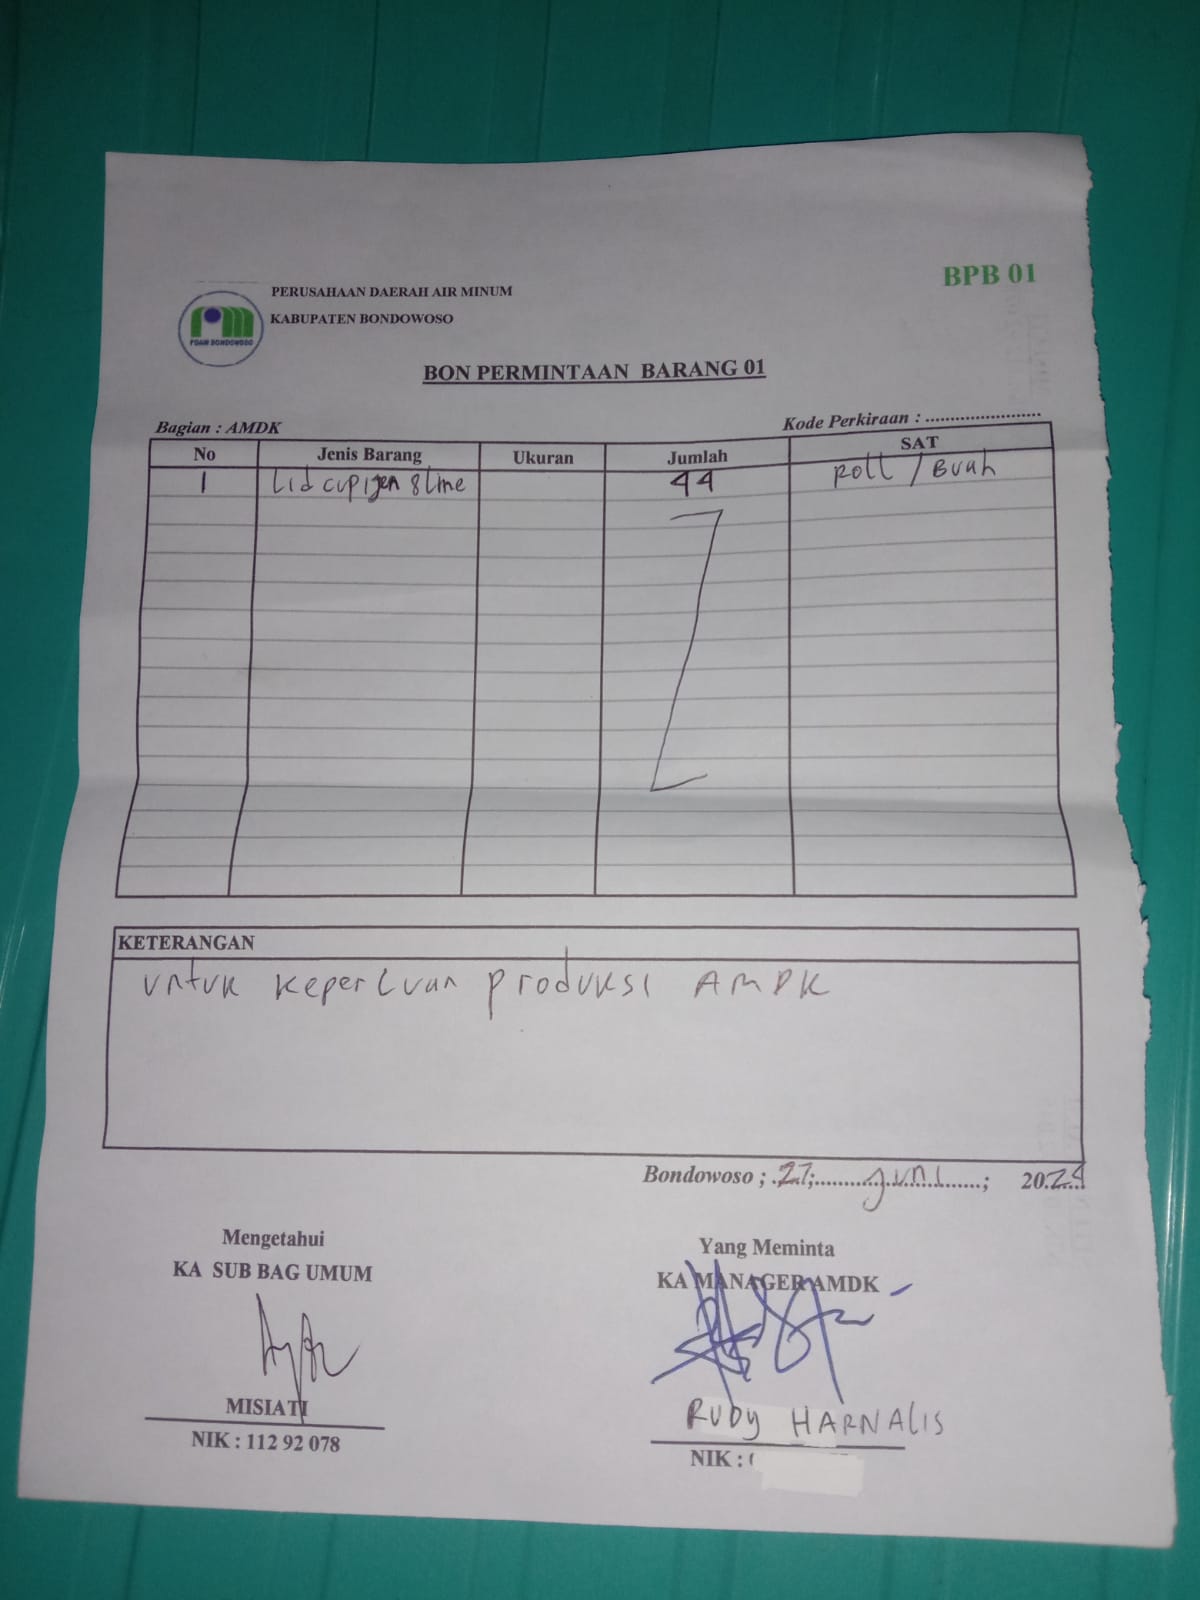 BPB 01
PERUSAHAAN DAERAH AIR MINUM
KABUPATEN BONDOWOSO
PDAM BONDOWOSO
BON PERMINTAAN BARANG 01
Bagian : AMDK
Kode Perkiraan : ........................
No Jenis Barang Ukuran Jumlah SAT
1 Lid cup ijen 8 line 44 Roll / Buah
KETERANGAN
untuk keperluan produksi AMDK
Bondowoso ; 27; juni ; 2024
Mengetahui
KA SUB BAG UMUM
MISIATI
NIK : 112 92 078
Yang Meminta
KA MANAGER AMDK
RUDY HARNALIS
NIK :